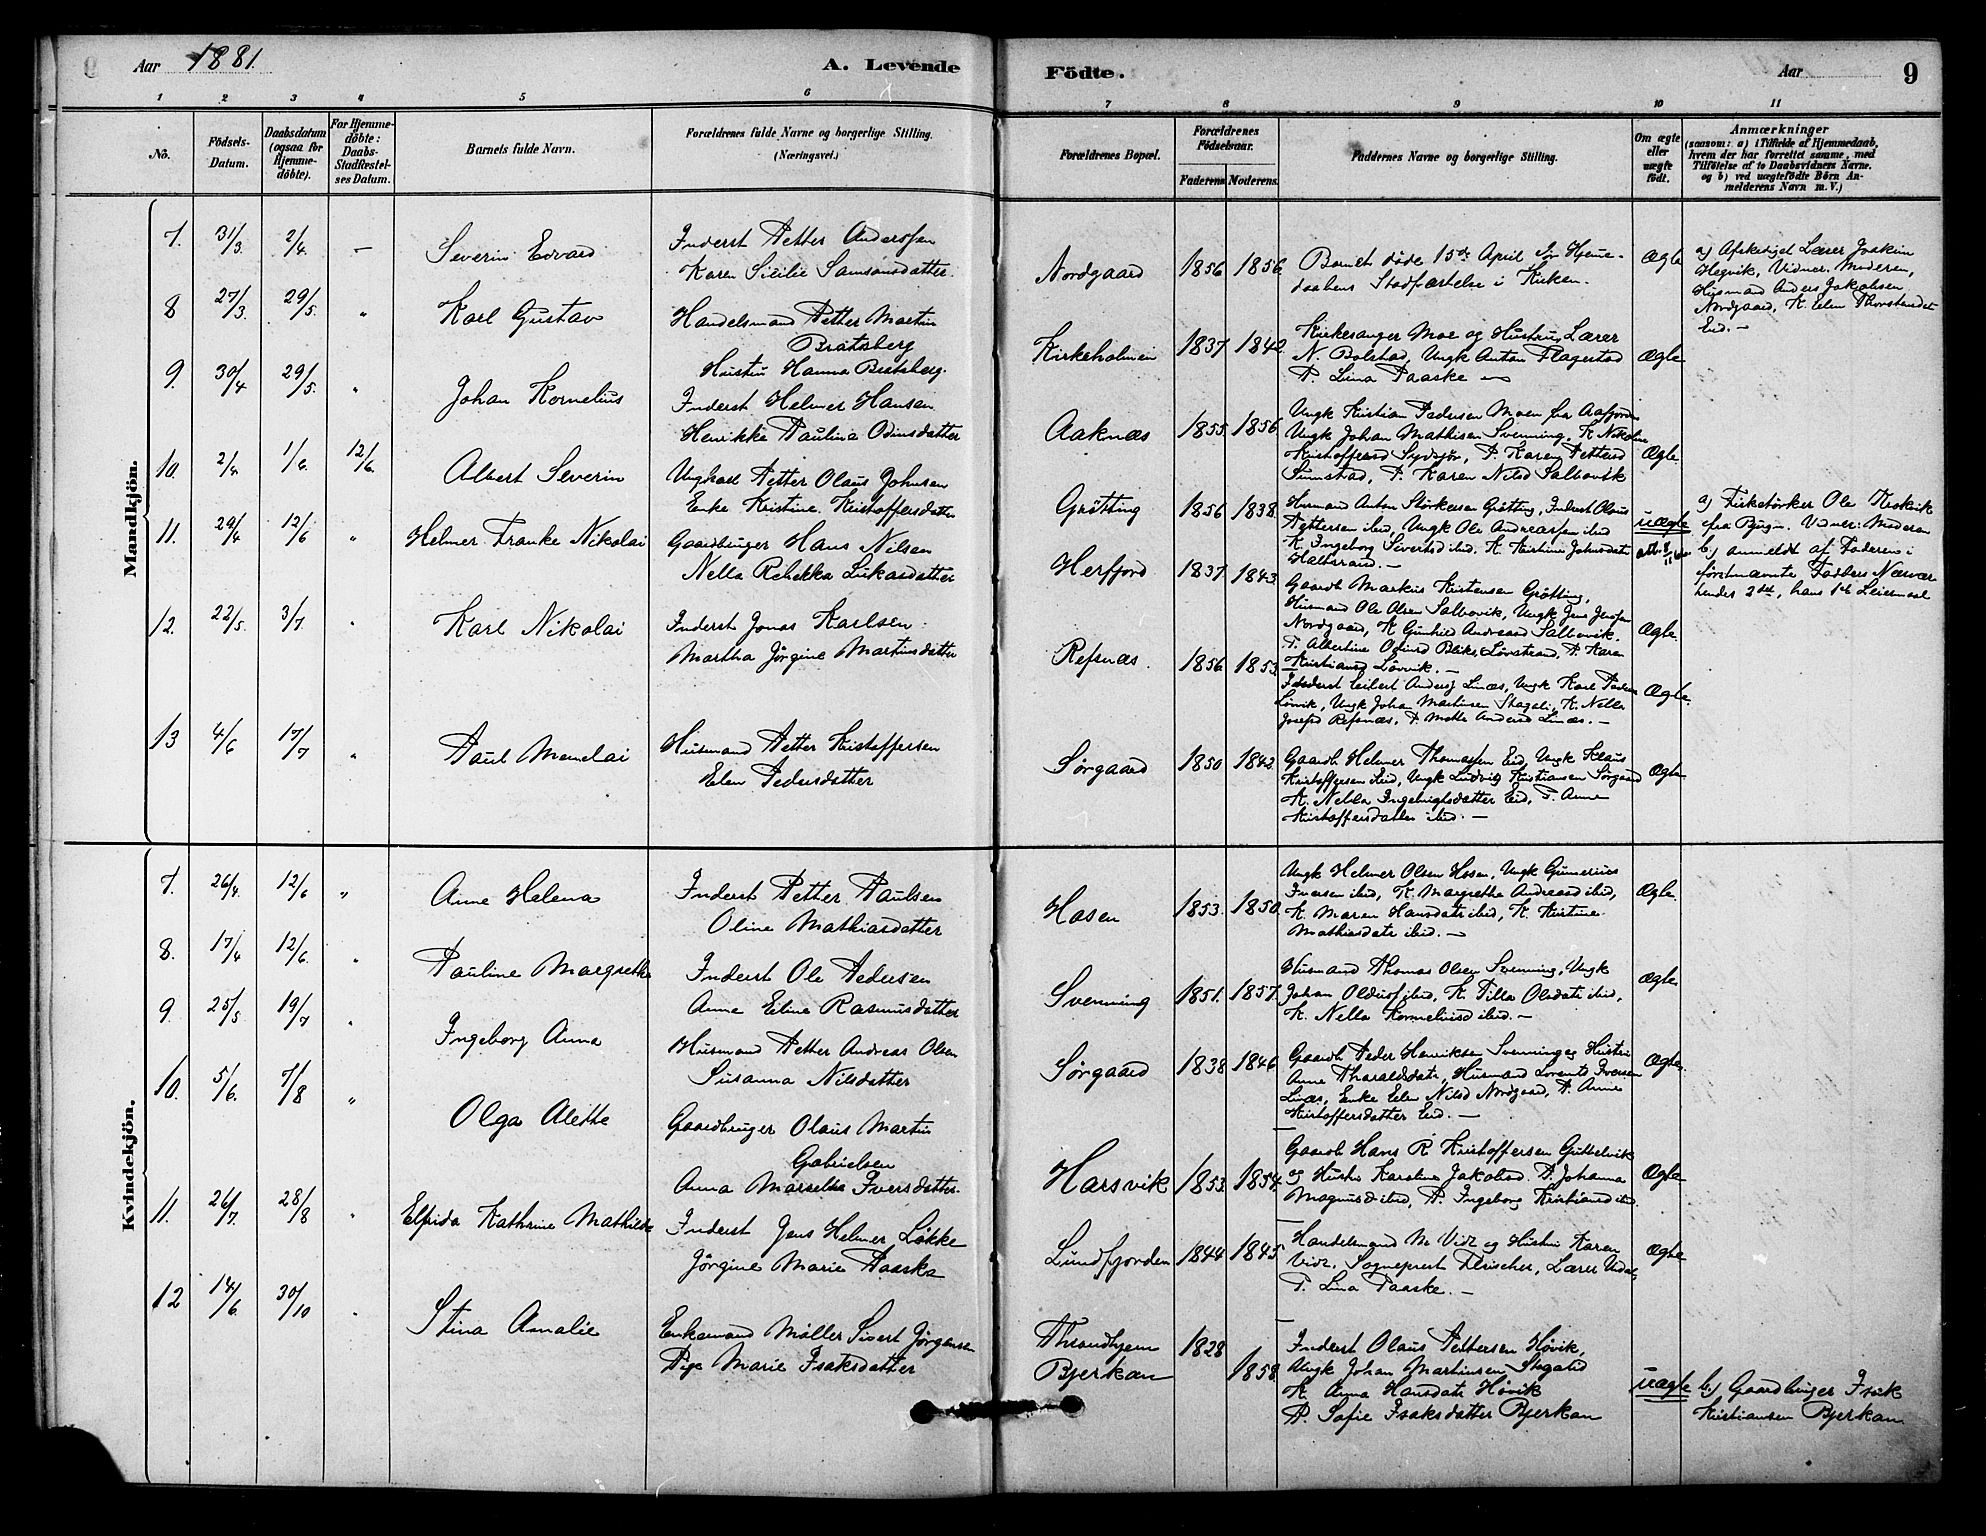 Aar 1881.
A. Levende
Födte.
Aar
9
1 2 3 4 5 6 7 8 9 10 11
No.
Födsels-
Datum.
Daabsdatum
(ogsaa for
Hjemme-
döbte).
For Hjemme-
döbte:
Daabs-
Stadfæstel-
ses Datum.
Barnets fulde Navn.
Forældrenes fulde Navne og borgerlige Stilling.
(Næringsvei.)
Forældrenes Bopæl.
Forældrenes
Födselsaar.
Faderens. Moderens.
Faddernes Navne og borgerlige Stilling.
Om ægte
eller
uægte
födt.
Anmærkninger
(saasom: a) i Tilfælde af Hjemmedaab,
hvem der har forrettet samme, med
Tilföielse af to Daabsvidners Navne.
og b) ved uægtefödte Börn An-
melderens Navn m. V.)
Mandkjön.
7. 31/3 2/4 — Severin Edvard
Inderst Petter Anderssen
Karen Sicilie Samsonsdatter.
Nordgaard 1856 1856
Barnet døde 15de April før Hjemme-
daabens Stadfæstelse i Kirken.
Ægte
a) Afskediget Lærer Joakim
Hegvik, Vidner: Moderen,
Husmand Anders Jakobsen
Nordgaard, K. Elen Thorstensdat
Eid. —
8 27/3 29/5. " Karl Gustav
Handelsmand Petter Martin
Bratsberg
Hustru Hanna Bratsberg.
Kirkeholmen 1837 1842
Kirkesanger Moe og Hustru, Lærer
N. Bolstad, Ungk Anton Flagestad
P. Lina Paaske —
Ægte
9. 30/4 29/5. " Johan Kornelius
Inderst Helmer Hansen
Henrikke Paulina Odinsdatter
Aaknæs 1855 1856
Ungk Kristian Pedersen Moen fra Aafjorden
Ungk Johan Mathisen Svenning, K. Nikoline
Kristoffersd Sydsjør, P. Karen Pettersd
Sumstad, P. Karen Nilsd Salbovik
Ægte.
10. 2/4 1/6. 12/6. Albert Severin
Ungkarl Petter Olaus Johnsen
Enke Kristine Kristoffersdatter
Grøtting 1856 1838
Husmand Anton Størkersen Grøtting, Inderst Olaus
Pettersen ibid, Ungk Ole Andreassen ibid
K. Ingeborg Sivertsd ibid, K. Kristine Johnsdatr
Haltstrand. —
uægte
a) Fisketørker Ole Keskvik
fra Bjugn. Vidner: Moderen
b.) anmeldt af Faderen i
førstnævnte Fadders Nærvær
hendes 2det, hans 1ste Leiermaal
11. 29/4 12/6 " Helmer Franke Nikolai
Gaardbruger Hans Nilsen
Nella Rebekka Lukasdatter
Herfjord 1837 1843
Gaardb Markus Kristensen Grøtting,
Husmand Ole Olsen Salbovik, Ungk Jens Jensen
Nordgaard, K. Gunhild Andreasd Salbovik.
P. Albertine Odinsd Bliks, Løvstrand, P. Karen
Kristiansd Løvvik. —
Ægte.
12. 22/5. 3/7. " Karl Nikolai
Inderst Jonas Karlsen
Martha Jørgine Martinsdatter
Refsnæs. 1856. 1853
Inderst Eilert Anders Linæs, Ungk Karl Peders
Løvvik, Ungk Johan Martinsen Skagali, K. Nella
Josefsd Refsnæs, P. Mette Andersd Linæs. —
Ægte.
13 4/6 17/7 " Paul Menelai
Husmand Petter Kristoffersen
Elen Pedersdatter
Sørgaard 1850 1842
Gaardb Helmer Thomassen Eid, Ungk Klaus
Kristoffersen ibid, Ungk Ludvig Kristiansen Sørgaard
K. Nella Ingebrigtsdatter Eid, P. Anne
Kristoffersdatter ibid. —
Ægte
Kvindekjön.
7. 26/4. 12/6 " Anne Helena
Inderst Petter Paulsen
Oline Mathiasdatter
Hasen 1853. 1850
Ungk Helmer Olsen Hosen, Ungk Gunerius
Iversen ibid, K. Margrethe Andreasd ibid,
K. Maren Hansdatr ibid, K. Kristine
Mathiasdatr ibid. —
Ægte.
8. 17/4 12/6. " Pauline Margrethe
Inderst Ole Pedersen
Anne Eline Rasmusdatter
Svenning 1851. 1857.
Husmand Thomas Olsen Svenning, Ungk
Johan Olaus ibid, K. Pilla Olsdatr ibid,
K. Nella Korneliusd ibid. —
Ægte.
9. 25/5 19/7 " Ingeborg Anna
Husmand Petter Andreas Olsen
Susanna Nilsdatter
Sørgaard 1838 1846
Gaardb Peder Henriksen Svenning og Hustru
Anne Tharaldsdatr, Husmand Lorents Iversen
Linæs, Enke Elen Nilsd Nordgaard, P. Anne
Kristoffersdatter Eid. —
Ægte.
10. 5/6. 7/8 " Olga Alette
Gaardbruger Olaus Martin
Gabrielsen
Anna Marselia Iversdatter.
Harsvik 1853. 1854
Gaardb Hans R Kristoffersen Guttelvik
og Hustru Karoline Jakobsd P. Johanna
Magnusd ibid, P. Ingeborg Kristiansd ibid.
Ægte.
11. 26/7. 28/8 " Elfrida Kathrine Mathilde
Inderst Jens Helmer Løkke
Jørgine Marie Paaske
Lundfjorden 1844 1845
Handelsmand M Vidz og Hustru Karen
Vidz, Sogneprest Fleischer, Lærer Uvdal,
P. Lina Paaske. —
Ægte
12 14/6. 30/10 " Stina Amalie
Enkemand Møller Sivert Jørgensen
Pige Marie Isaksdatter
Throndhjem
Bjerkan
1828
1858
Inderst Olaus Pettersen Høvik,
Ungk Johan Martinsen Skagalid
K. Anna Hansdatr Høvik
P. Sofie Isaksdatter Bjerkan
uægte
b.) Gaardbruger Isak
Kristiansen Bjerkan